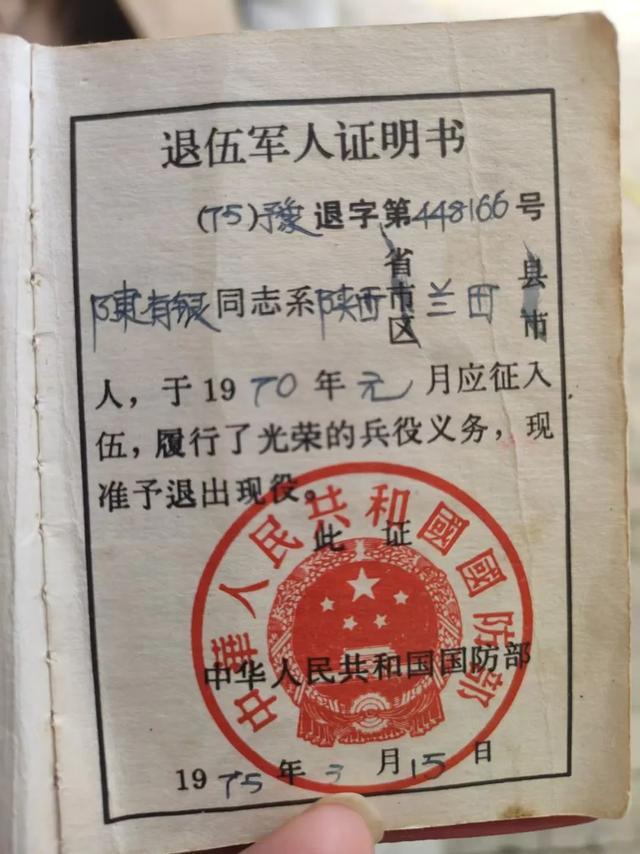 退伍军人证明书
(75)豫退字第448166号
陳有银同志系陕西省市区兰田县市
人，于1970年元月应征入
伍，履行了光荣的兵役义务，现
准予退出现役。
此 证
中華人民共和國國防部
中华人民共和国国防部
1975年3月15日